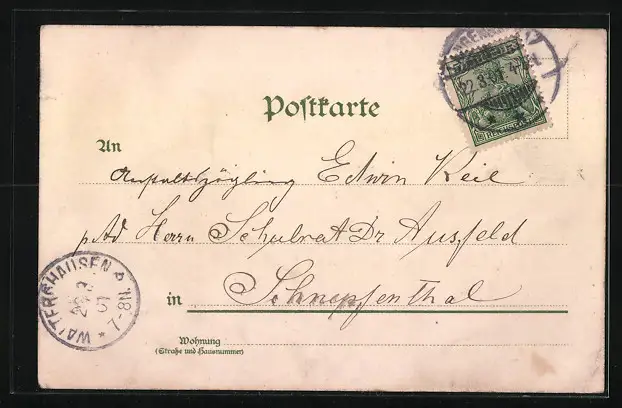 Postkarte
An
Anstaltszögling Edwin Keil
p. Ad. Herrn Schulrat Dr Ausfeld
in Schnepfenthal
Wohnung
(Straße und Hausnummer)
WALTERSHAUSEN
7-8N.